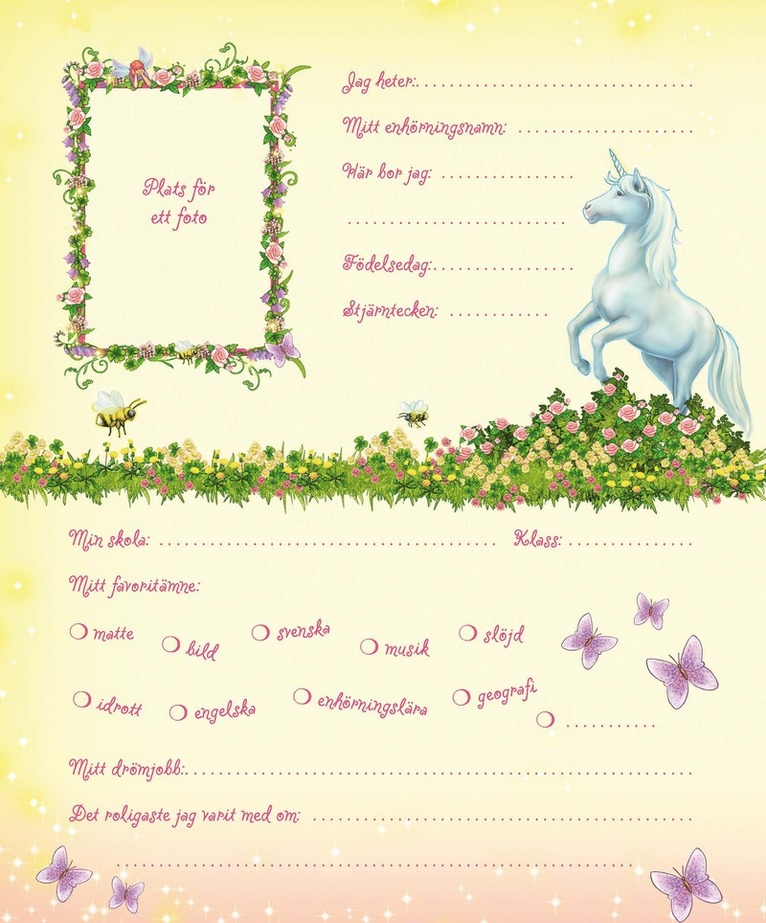 Plats för
ett foto
Jag heter:
Mitt enhörningsnamn:
Här bor jag:
Födelsedag:
Stjärntecken:
Min skola: Klass:
Mitt favoritämne:
matte bild svenska musik slöjd
idrott engelska enhörningslära geografi
Mitt drömjobb:
Det roligaste jag varit med om: